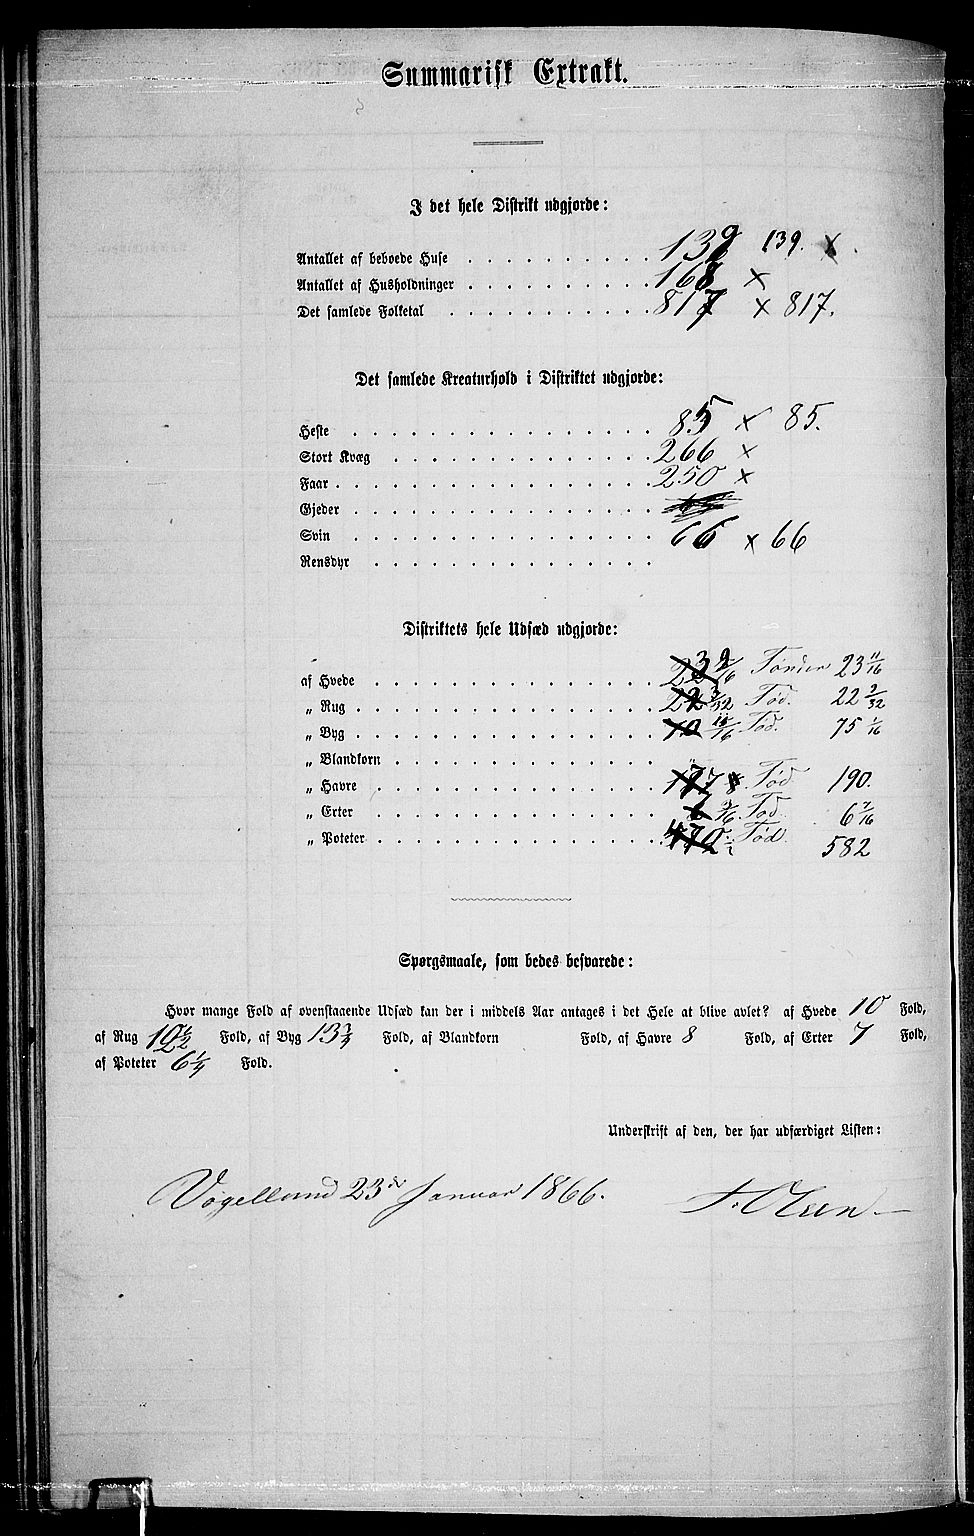 Summarisk Extrakt.
I det hele Distrikt udgjorde:
Antallet af beboede Huse 139 139. x
Antallet af Husholdninger 168 x
Det samlede Folketal 817 x 817.
Det samlede Kreaturhold i Distriktet udgjorde:
Heste 85 x 85.
Stort Kvæg 266 x
Faar 250 x
Gjeder
Svin 66 x 66
Rensdyr
Distriktets hele Udsæd udgjorde:
af Hvede Tønder 23 11/16
„ Rug Tød. 22 3/32
„ Byg Tød. 75 1/16
„ Blandkorn
„ Havre Tød 190.
„ Erter Tød 6 3/16
„ Poteter Tød. 582
Spørgsmaale, som bedes besvarede:
Hvor mange Fold af ovenstaaende Udsæd kan der i middels Aar antages i det Hele at blive avlet? af Hvede 10 Fold,
af Rug Fold, af Byg 13 3/4 Fold, af Blandkorn Fold, af Havre 8 Fold, af Erter 7 Fold,
af Poteter 6 1/4 Fold.
Underskrift af den, der har udfærdiget Listen:
23de Januar 1866. Olsen